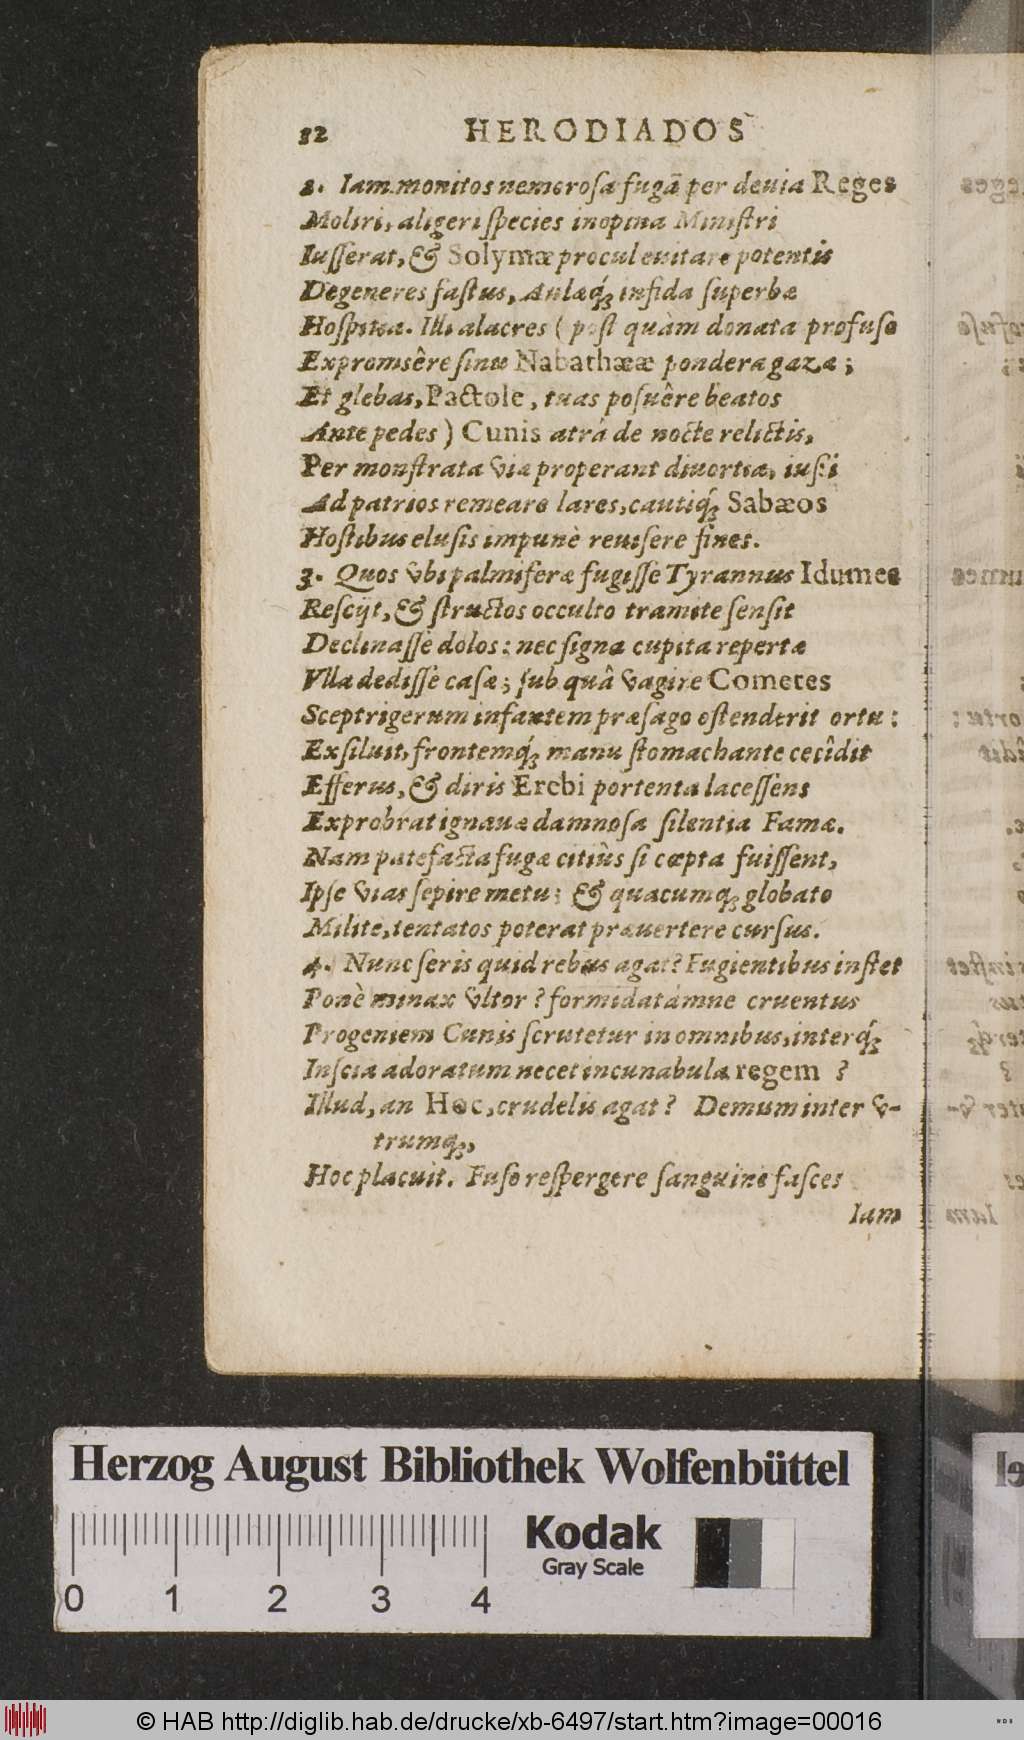 12 HERODIADOS
2. Iam monitos nemorosa fugā per deuia Reges
Moliri, aligeri species inopina Ministri
Iusserat, & Solymæ procul euitare potentis
Degeneres fastus, Aulæq́; infida superbæ
Hospitia. Illi alacres (post quàm donata profuso
Expromsêre sinu Nabathææ pondera gazæ;
Et glebas, Pactole, tuas posuêre beatos
Ante pedes) Cunis atrâ de nocte relictis,
Per monstrata viæ properant diuortia, iussi
Ad patrios remeare lares, cautiq́; Sabæos
Hostibus elusis impunè reuisere fines.
3. Quos vbi palmiferæ fugisse Tyrannus Idumes
Rescijt, & structos occulto tramite sensit
Declinasse dolos: nec signa cupita repertæ
Vlla dedisse casæ; sub quâ vagire Cometes
Sceptrigerum infantem præsago ostenderit ortu:
Exsiluit, frontemq́; manu stomachante cecîdit
Efferus, & diris Erebi portenta lacessens
Exprobrat ignauæ damnosa silentia Famæ.
Nam patefacta fugæ citiùs si cœpta fuissent,
Ipse vias sepire metu; & quacumq; globato
Milite, tentatos poterat præuertere cursus.
4. Nunc seris quid rebus agat? Fugientibus instet
Ponè minax vltor? formidatámne cruentus
Progeniem Cunis scrutetur in omnibus, interq́;
Inscia adoratum necet incunabula regem?
Illud, an Hoc, crudelis agat? Demum inter v-
trumq;,
Hoc placuit. Fuso respergere sanguine fasces
Iam
Herzog August Bibliothek Wolfenbüttel
Kodak
Gray Scale
0 1 2 3 4
© HAB http://diglib.hab.de/drucke/xb-6497/start.htm?image=00016